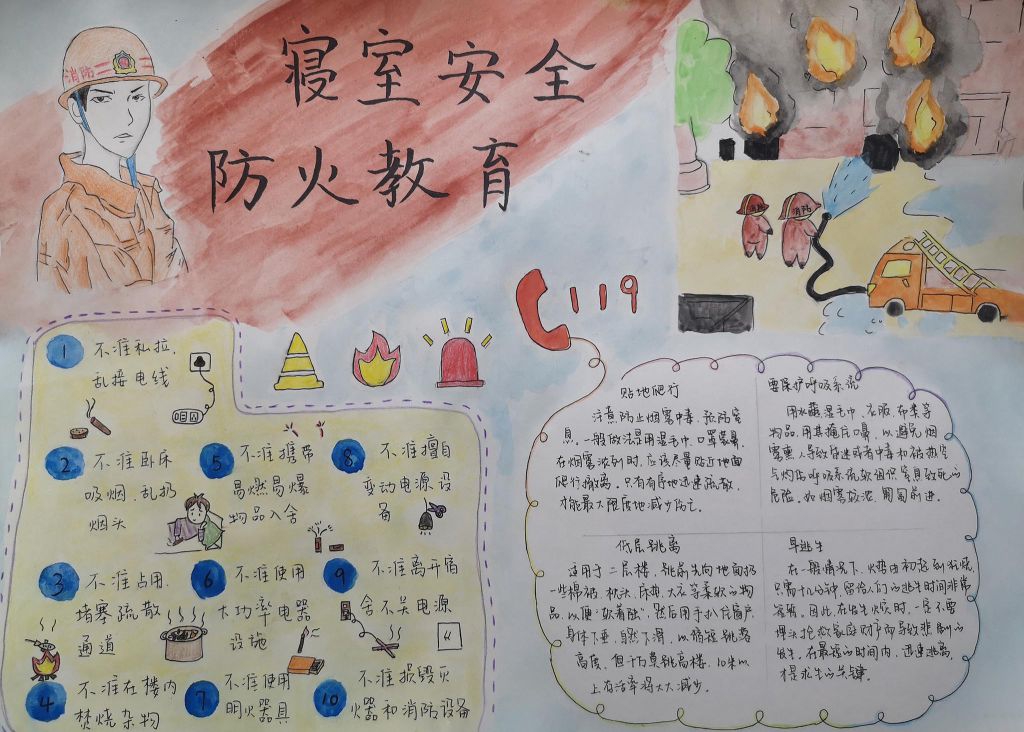 寝室安全
防火教育
消防
消防
消防
119
1 不准私拉,
乱接电线
2 不准卧床
吸烟、乱扔
烟头
3 不准占用、
堵塞疏散
通道
4 不准在楼内
焚烧杂物
5 不准携带
易燃易爆
物品入舍
6 不准使用
大功率电器
设施
7 不准使用
明火器具
8 不准擅自
变动电源设
备
9 不准离开宿
舍不关电源
10 不准损毁灭
火器和消防设备
贴地爬行
注意防止烟雾中毒、预防窒
息,一般做法是用湿毛巾、口罩蒙鼻,
在烟雾浓烈时,应该尽量贴近地面
爬行撤离,只有有序地迅速疏散,
才能最大限度地减少伤亡。
要保护呼吸系统
用水蘸湿毛巾、衣服、布类等
物品,用其掩住口鼻,以避免烟
雾熏人导致昏迷或者中毒和被热空
气灼伤呼吸系统软组织窒息致死的
危险。如烟雾较浓,匍匐前进。
低层跳离
适用于二层楼,跳前先向地面扔
一些棉被、枕头、床垫、大衣等柔软的物
品,以便“软着陆”,然后用手扒住窗户,
身体下垂,自然下滑,以缩短跳落
高度,但千万莫跳高楼,10米以
上存活率将大大减少。
早逃生
在一般情况下,火势由初起到狂烧,
只需十几分钟,留给人们的逃生时间非常
短暂,因此,在发生火灾时,一定不要
埋头抢救家庭财产而导致悲剧的
发生,在最短的时间内,迅速逃离,
才是求生的关键。